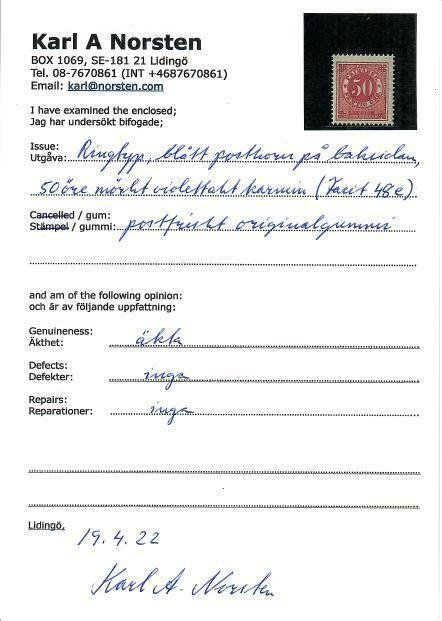 Karl A Norsten
BOX 1069, SE-181 21 Lidingö
Tel. 08-7670861 (INT +4687670861)
Email: karl@norsten.com
I have examined the enclosed;
Jag har undersökt bifogade;
Issue:
Utgåva: Ringtyp, blått posthorn på baksidan,
50 öre mörkt violettaht karmin (Facit 48e)
Cancelled / gum:
Stämpel / gummi: postfriskt originalgummi
and am of the following opinion:
och är av följande uppfattning:
Genuineness:
Äkthet: äkta
Defects:
Defekter: inga
Repairs:
Reparationer: inga
Lidingö,
19.4.22
Karl A. Norsten
50